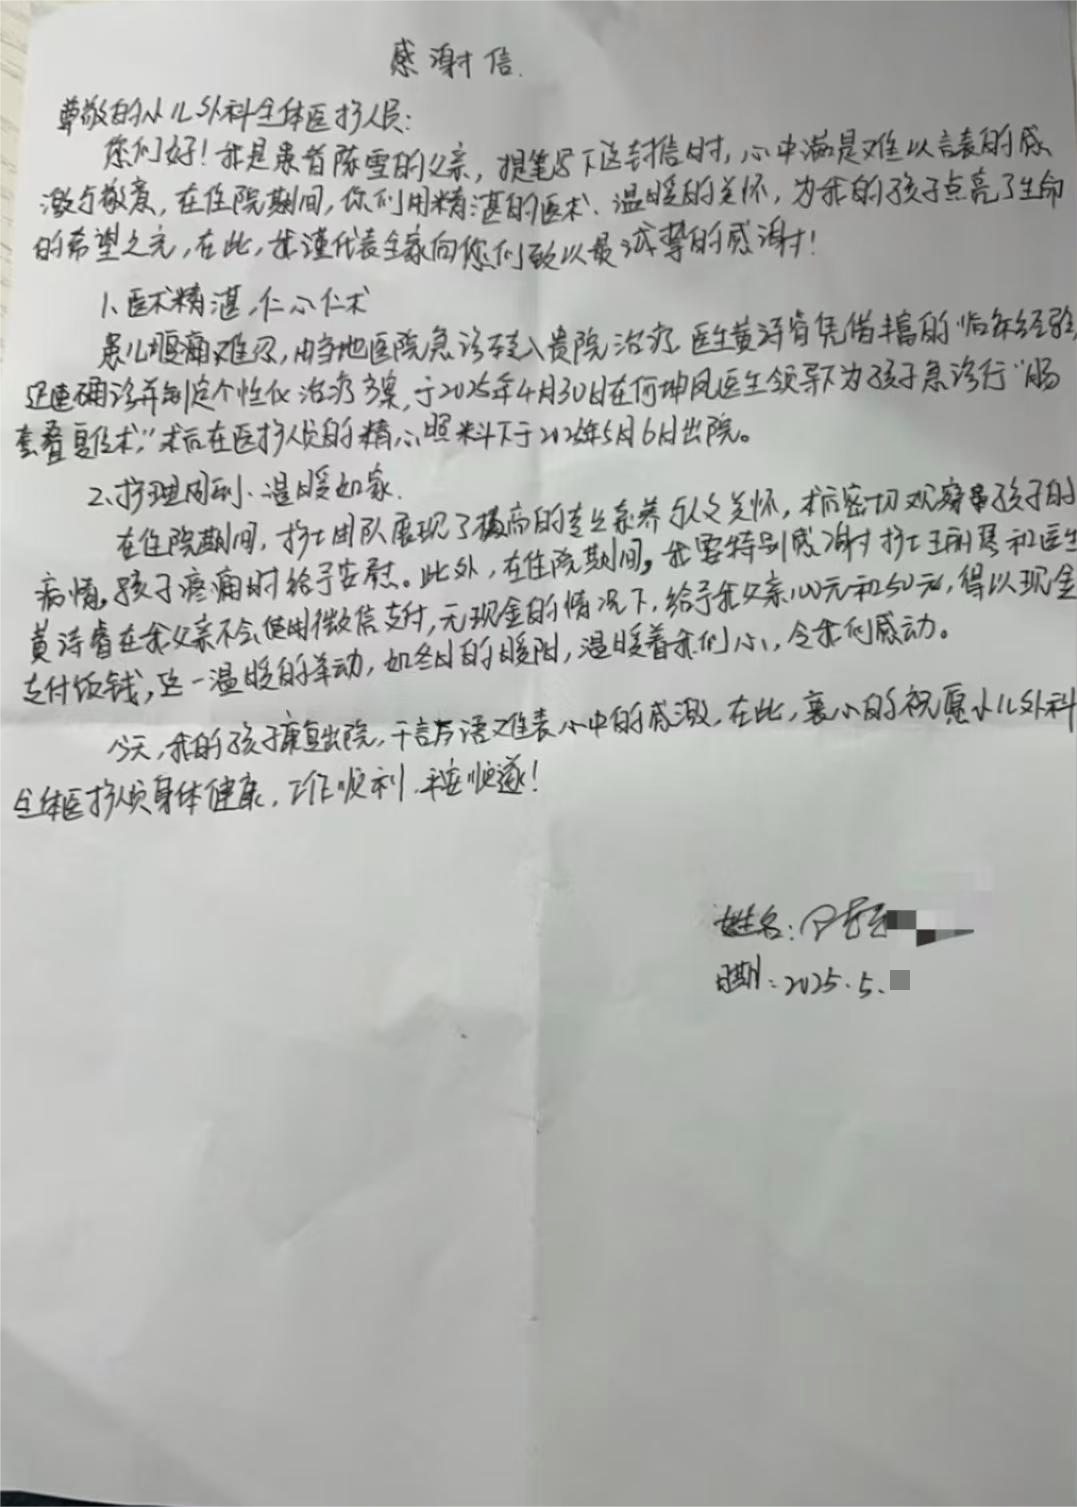 感谢信.
尊敬的小儿外科全体医护人员:
您们好!我是患者陈雪的父亲,提笔写下这封信时,心中满是难以言表的感
激与敬意,在住院期间,你们用精湛的医术、温暖的关怀,为我的孩子点亮了生命
的希望之光,在此,我谨代表全家向您们致以最诚挚的感谢!
1、医术精湛,仁心仁术
患儿腹痛难忍,由当地医院急诊转入贵院治疗,医生黄诗睿凭借丰富的临床经验,
迅速确诊并制定个性化治疗方案,于2025年4月30日在何坤凤医生领导下为孩子急诊行“肠
套叠复位术”,术后在医护人员的精心照料下于2025年5月6日出院。
2、护理周到、温暖如家.
在住院期间,护士团队展现了极高的专业素养与人文关怀,术后密切观察孩子的
病情,孩子疼痛时给予安慰。此外,在住院期间,我要特别感谢护士王丽琴和医生
黄诗睿在我父亲不会使用微信支付,无现金的情况下,给予我父亲100元和50元,得以现金
支付饭钱,这一温暖的举动,如冬日的暖阳,温暖着我们心,令我们感动。
今天,我的孩子康复出院,千言万语难表心中的感激,在此,衷心的祝愿小儿外科
全体医护人员身体健康,工作顺利,平安顺遂!
姓名:
日期:2025.5.